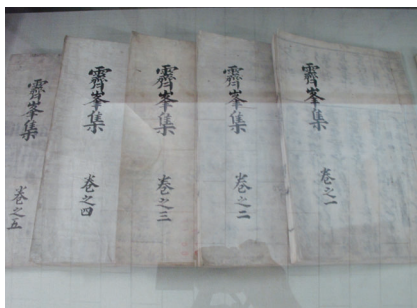 霽峯集
卷之一
霽峯集
卷之二
霽峯集
卷之三
霽峯集
卷之四
霽峯集
卷之五